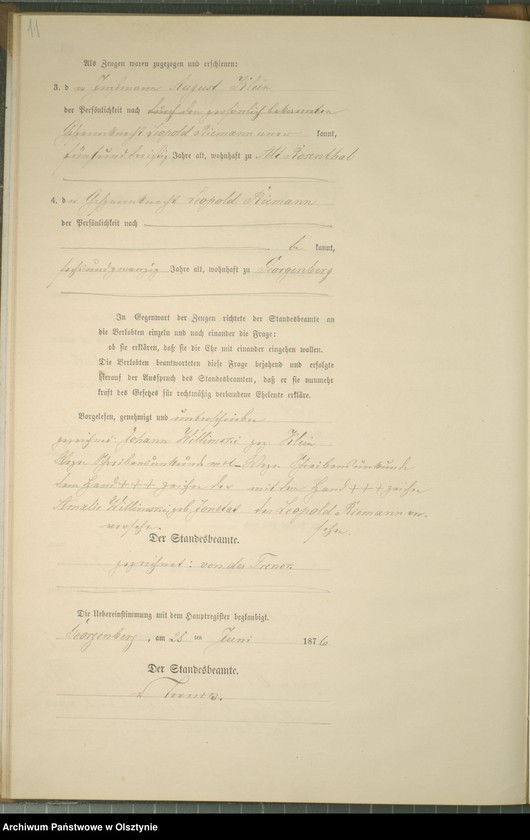 11
Als Zeugen waren zugezogen und erschienen:
3. d er Instmann August Klein
der Persönlichkeit nach durch den persönlich bekannten
Gespannknecht Leopold Riemann aner kannt,
fünfunddreißig Jahre alt, wohnhaft zu Alt Rosenthal
4. d er Gespannknecht Leopold Riemann
der Persönlichkeit nach
be kannt,
sechsundzwanzig Jahre alt, wohnhaft zu Georgenberg
In Gegenwart der Zeugen richtete der Standesbeamte an
die Verlobten einzeln und nach einander die Frage:
ob sie erklären, daß sie die Ehe mit einander eingehen wollen.
Die Verlobten beantworteten diese Frage bejahend und erfolgte
hierauf der Ausspruch des Standesbeamten, daß er sie nunmehr
kraft des Gesetzes für rechtmäßig verbundene Eheleute erkläre.
Vorgelesen, genehmigt und unterschrieben
gezeichnet: Johann Willimski gez. Klein
Wegen Schreibensunkunde mit Wegen Schreibensunkunde
dem Hand +++ zeichen der mit dem Hand +++ zeichen
Amalie Willimski geb. des Leopold Riemann ver-
versehn. sehen.
Der Standesbeamte.
gezeichnet: von der Trenck
Die Uebereinstimmung mit dem Hauptregister beglaubigt.
Georgenberg, am 25 ten Juni 1876
Der Standesbeamte.
v Trenck.
Archiwum Państwowe w Olsztynie